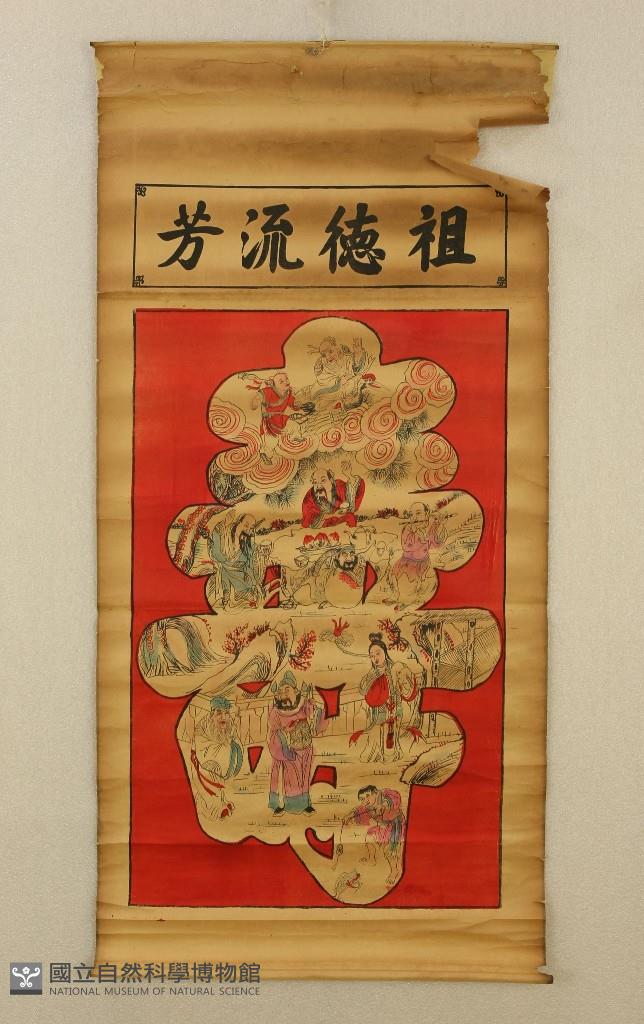 祖徳流芳
壽
國立自然科學博物館
NATIONAL MUSEUM OF NATURAL SCIENCE